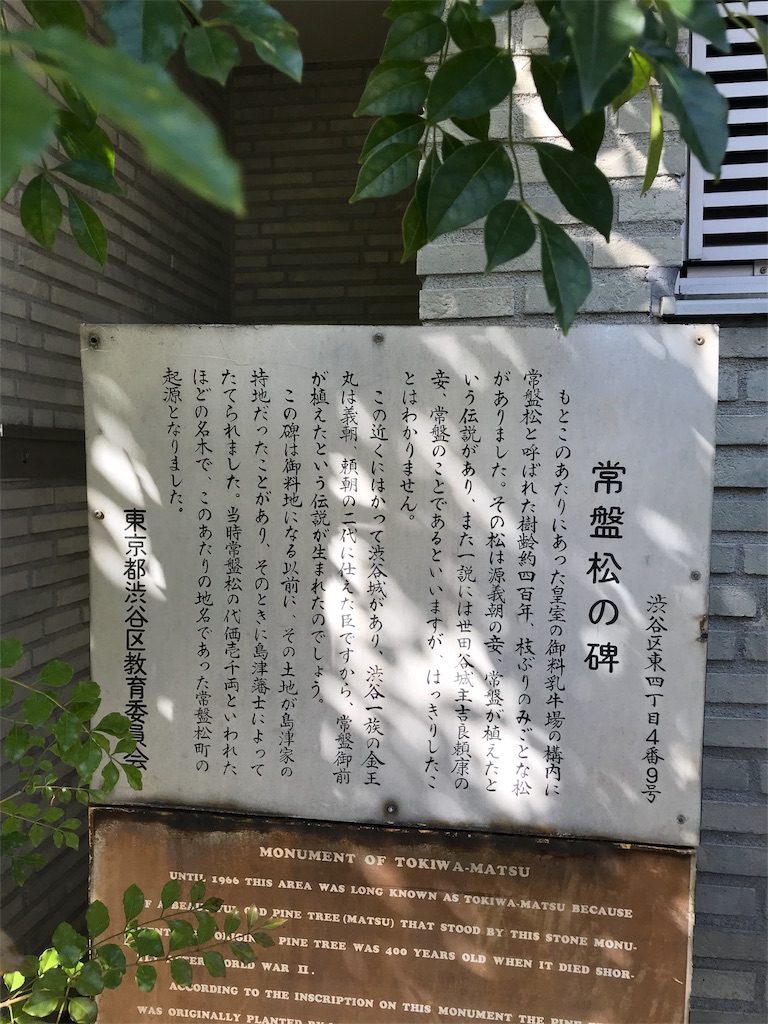 渋谷区東四丁目4番9号
常盤松の碑
もとこのあたりにあった皇室の御料乳牛場の構内に
常盤松と呼ばれた樹齢約四百年、枝ぶりのみごとな松
がありました。その松は源義朝の妾、常盤が植えたと
いう伝説があり、また一説には世田谷城主吉良頼康の
妾、常盤のことであるといいますが、はっきりしたこ
とはわかりません。
この近くにはかつて渋谷城があり、渋谷一族の金王
丸は義朝、頼朝の二代に仕えた臣ですから、常盤御前
が植えたという伝説が生まれたのでしょう。
この碑は御料地になる以前に、その土地が島津家の
持地だったことがあり、そのときに島津藩士によって
たてられました。当時常盤松の代価壱千両といわれた
ほどの名木で、このあたりの地名であった常盤松町の
起源となりました。
東京都渋谷区教育委員会
MONUMENT OF TOKIWA-MATSU
UNTIL 1966 THIS AREA WAS LONG KNOWN AS TOKIWA-MATSU BECAUSE
OLD PINE TREE (MATSU) THAT STOOD BY THIS STONE MONU-
PINE TREE WAS 400 YEARS OLD WHEN IT DIED SHOR-
WORLD WAR II.
ACCORDING TO THE INSCRIPTION ON THIS MONUMENT THE PINE
WAS ORIGINALLY PLANTED